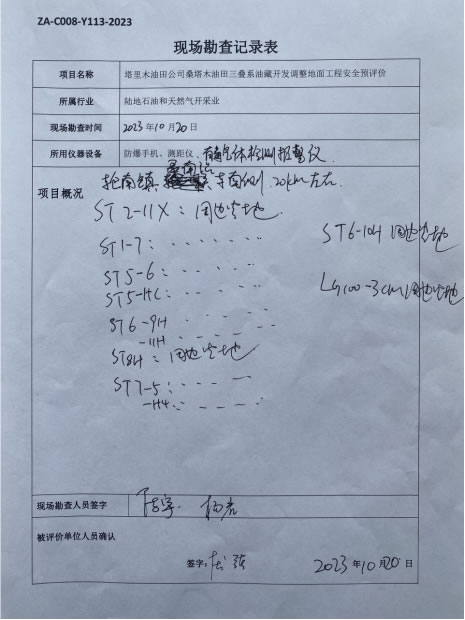 ZA-C008-Y113-2023
现场勘查记录表
项目名称 塔里木油田公司桑塔木油田三叠系油藏开发调整地面工程安全预评价
所属行业 陆地石油和天然气开采业
现场勘查时间 2023年10月20日
所用仪器设备 防爆手机、测距仪、有毒气体检测报警仪
项目概况 轮南镇 东南侧 20km左右
ST2-11X：周边空地
ST1-7：
ST6-10H 周边空地
ST5-6：
ST5-HC：
LG100-3CM 周边空地
ST6-9H
-11H
ST8H：周边空地
ST7-5：
-H4：
现场勘查人员签字
被评价单位人员确认
签字：
2023年10月20日